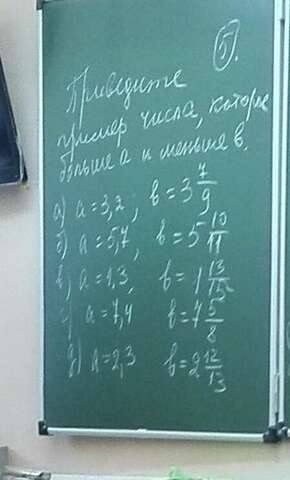 5.
Приведите
пример числа, которое
больше a и меньше b.
а) a=3,2; b=3 7/9
б) a=5,7; b=5 10/11
в) a=1,3; b=1 13/15
г) a=7,4 b=7 5/8
д) a=2,3 b=2 12/13